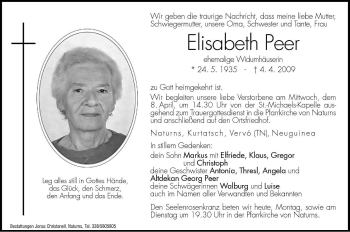 Wir geben die traurige Nachricht, dass meine liebe Mutter,
Schwiegermutter, unsere Oma, Schwester und Tante, Frau
Elisabeth Peer
ehemalige Widumhäuserin
* 24. 5. 1935 † 4. 4. 2009
zu Gott heimgekehrt ist.
Wir begleiten unsere liebe Verstorbene am Mittwoch, dem
8. April, um 14.30 Uhr von der St.-Michaels-Kapelle aus-
gehend zum Trauergottesdienst in die Pfarrkirche von Naturns
und anschließend auf den Ortsfriedhof.
Naturns, Kurtatsch, Vervò (TN), Neuguinea
In stillem Gedenken:
dein Sohn Markus mit Elfriede, Klaus, Gregor
und Christoph
deine Geschwister Antonia, Thresl, Angela und
Altdekan Georg Peer
deine Schwägerinnen Walburg und Luise
im Namen aller Verwandten und Bekannten
Den Seelenrosenkranz beten wir heute, Montag, sowie am
Dienstag um 19.30 Uhr in der Pfarrkirche von Naturns.
Leg alles still in Gottes Hände,
das Glück, den Schmerz,
den Anfang und das Ende.
Bestattungen Jonas Christanell, Naturns, Tel. 338/5805905